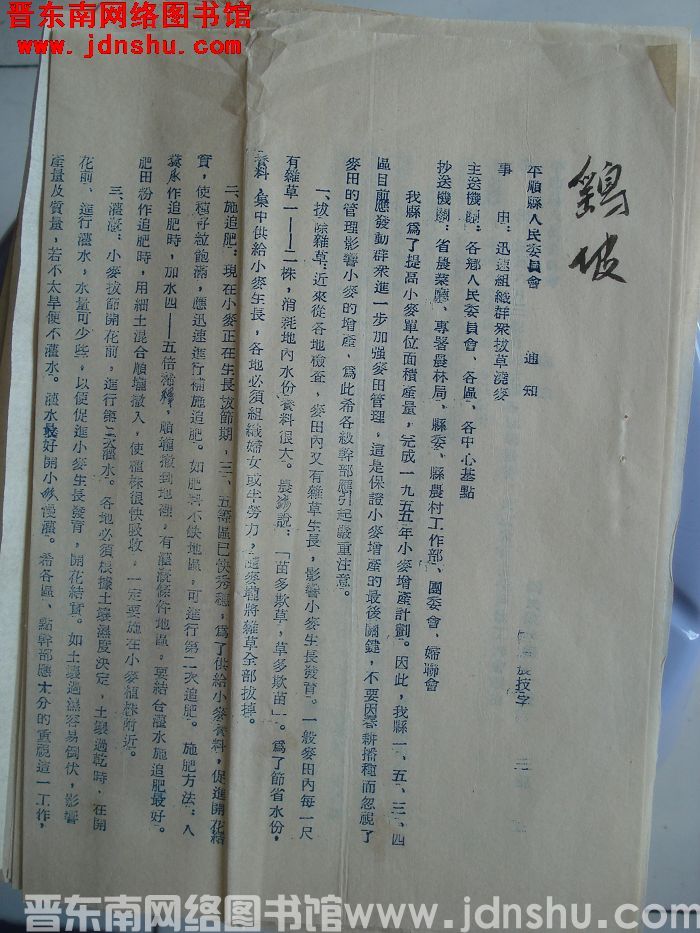 晋东南网络图书馆
www.jdnshu.com
平順縣人民委員會　通知
農技字
事　由：迅速組織群衆拔草澆麥
主送機關：各鄉人民委員會、各區、各中心基點
抄送機關：省農業廳、專署農林局、縣委、縣農村工作部、團委會、婦聯會
我縣爲了提高小麥單位面積產量，完成一九五五年小麥增產計劃。因此，我縣一、五、三、四
區目前應發動群衆進一步加强麥田管理，這是保證小麥增產的最後關鍵，不要因春耕播種而忽視了
麥田的管理影響小麥的增產，爲此希各級幹部應引起嚴重注意。
一、拔除雜草：近來從各地檢查，麥田內又有雜草生長，影響小麥生長發育。一般麥田內每一尺
有雜草一——二株，消耗地內水份養料很大。農諺說：「苗多欺草，草多欺苗」。爲了節省水份，
養料，集中供給小麥生長，各地必須組織婦女或半勞力，隨麥壠將雜草全部拔掉。
二、施追肥：現在小麥正在生長拔節期，三、五等區已快秀穗，爲了供給小麥養料，促進開花結
實，使種籽粒飽滿，應迅速進行補施追肥。如肥料不缺地區，可進行第二次追肥。施肥方法：人
糞尿作追肥時，加水四——五倍　，順壠撒到地　，有灌溉條件地區，要結合灌水施追肥最好。
肥田粉作追肥時，用細土混合順壠撒入，使植株很快吸收，一定要施在小麥植株附近。
三、灌溉：小麥拔節開花前，進行第二次灌水。各地必須根據土壤濕度決定，土壤過乾時，在開
花前、進行灌水，水量可少些，以便促進小麥生長發育，開花結實。如土壤過濕容易倒伏，影響
產量及質量，若不太旱便不灌水。灌水最好開小　慢灌。希各區、點幹部應十分的重視這一工作，
晋东南网络图书馆 www.jdnshu.com